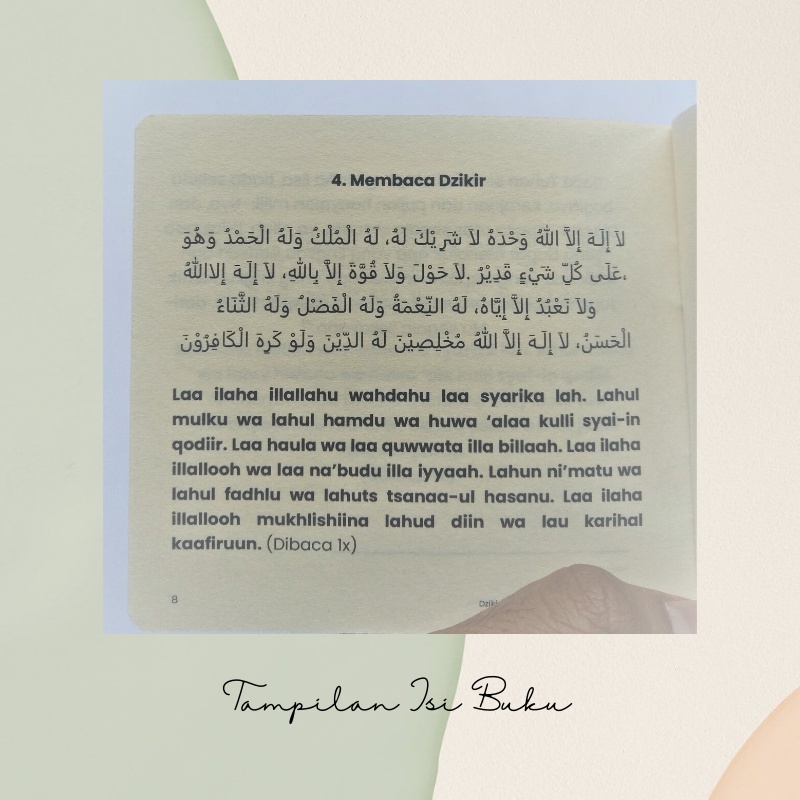 4. Membaca Dzikir
لاَ إِلَهَ إِلاَّ اللهُ وَحْدَهُ لاَ شَرِيْكَ لَهُ، لَهُ الْمُلْكُ وَلَهُ الْحَمْدُ وَهُوَ
عَلَى كُلِّ شَيْءٍ قَدِيْرُ .لاَ حَوْلَ وَلاَ قُوَّةَ إِلاَّ بِاللهِ، لاَ إِلَهَ إِلااللهُ،
وَلاَ نَعْبُدُ إِلاَّ إِيَّاهُ، لَهُ النِّعْمَةُ وَلَهُ الْفَضْلُ وَلَهُ الثَّنَاءُ
الْحَسَنُ، لاَ إِلَهَ إِلاَّ اللهُ مُخْلِصِيْنَ لَهُ الدِّيْنَ وَلَوْ كَرِهَ الْكَافِرُوْنَ
Laa ilaha illallahu wahdahu laa syarika lah. Lahul
mulku wa lahul hamdu wa huwa ‘alaa kulli syai-in
qodiir. Laa haula wa laa quwwata illa billaah. Laa ilaha
illallooh wa laa na’budu illa iyyaah. Lahun ni’matu wa
lahul fadhlu wa lahuts tsanaa-ul hasanu. Laa ilaha
illallooh mukhlishiina lahud diin wa lau karihal
kaafiruun. (Dibaca 1x)
8
Tampilan Isi Buku